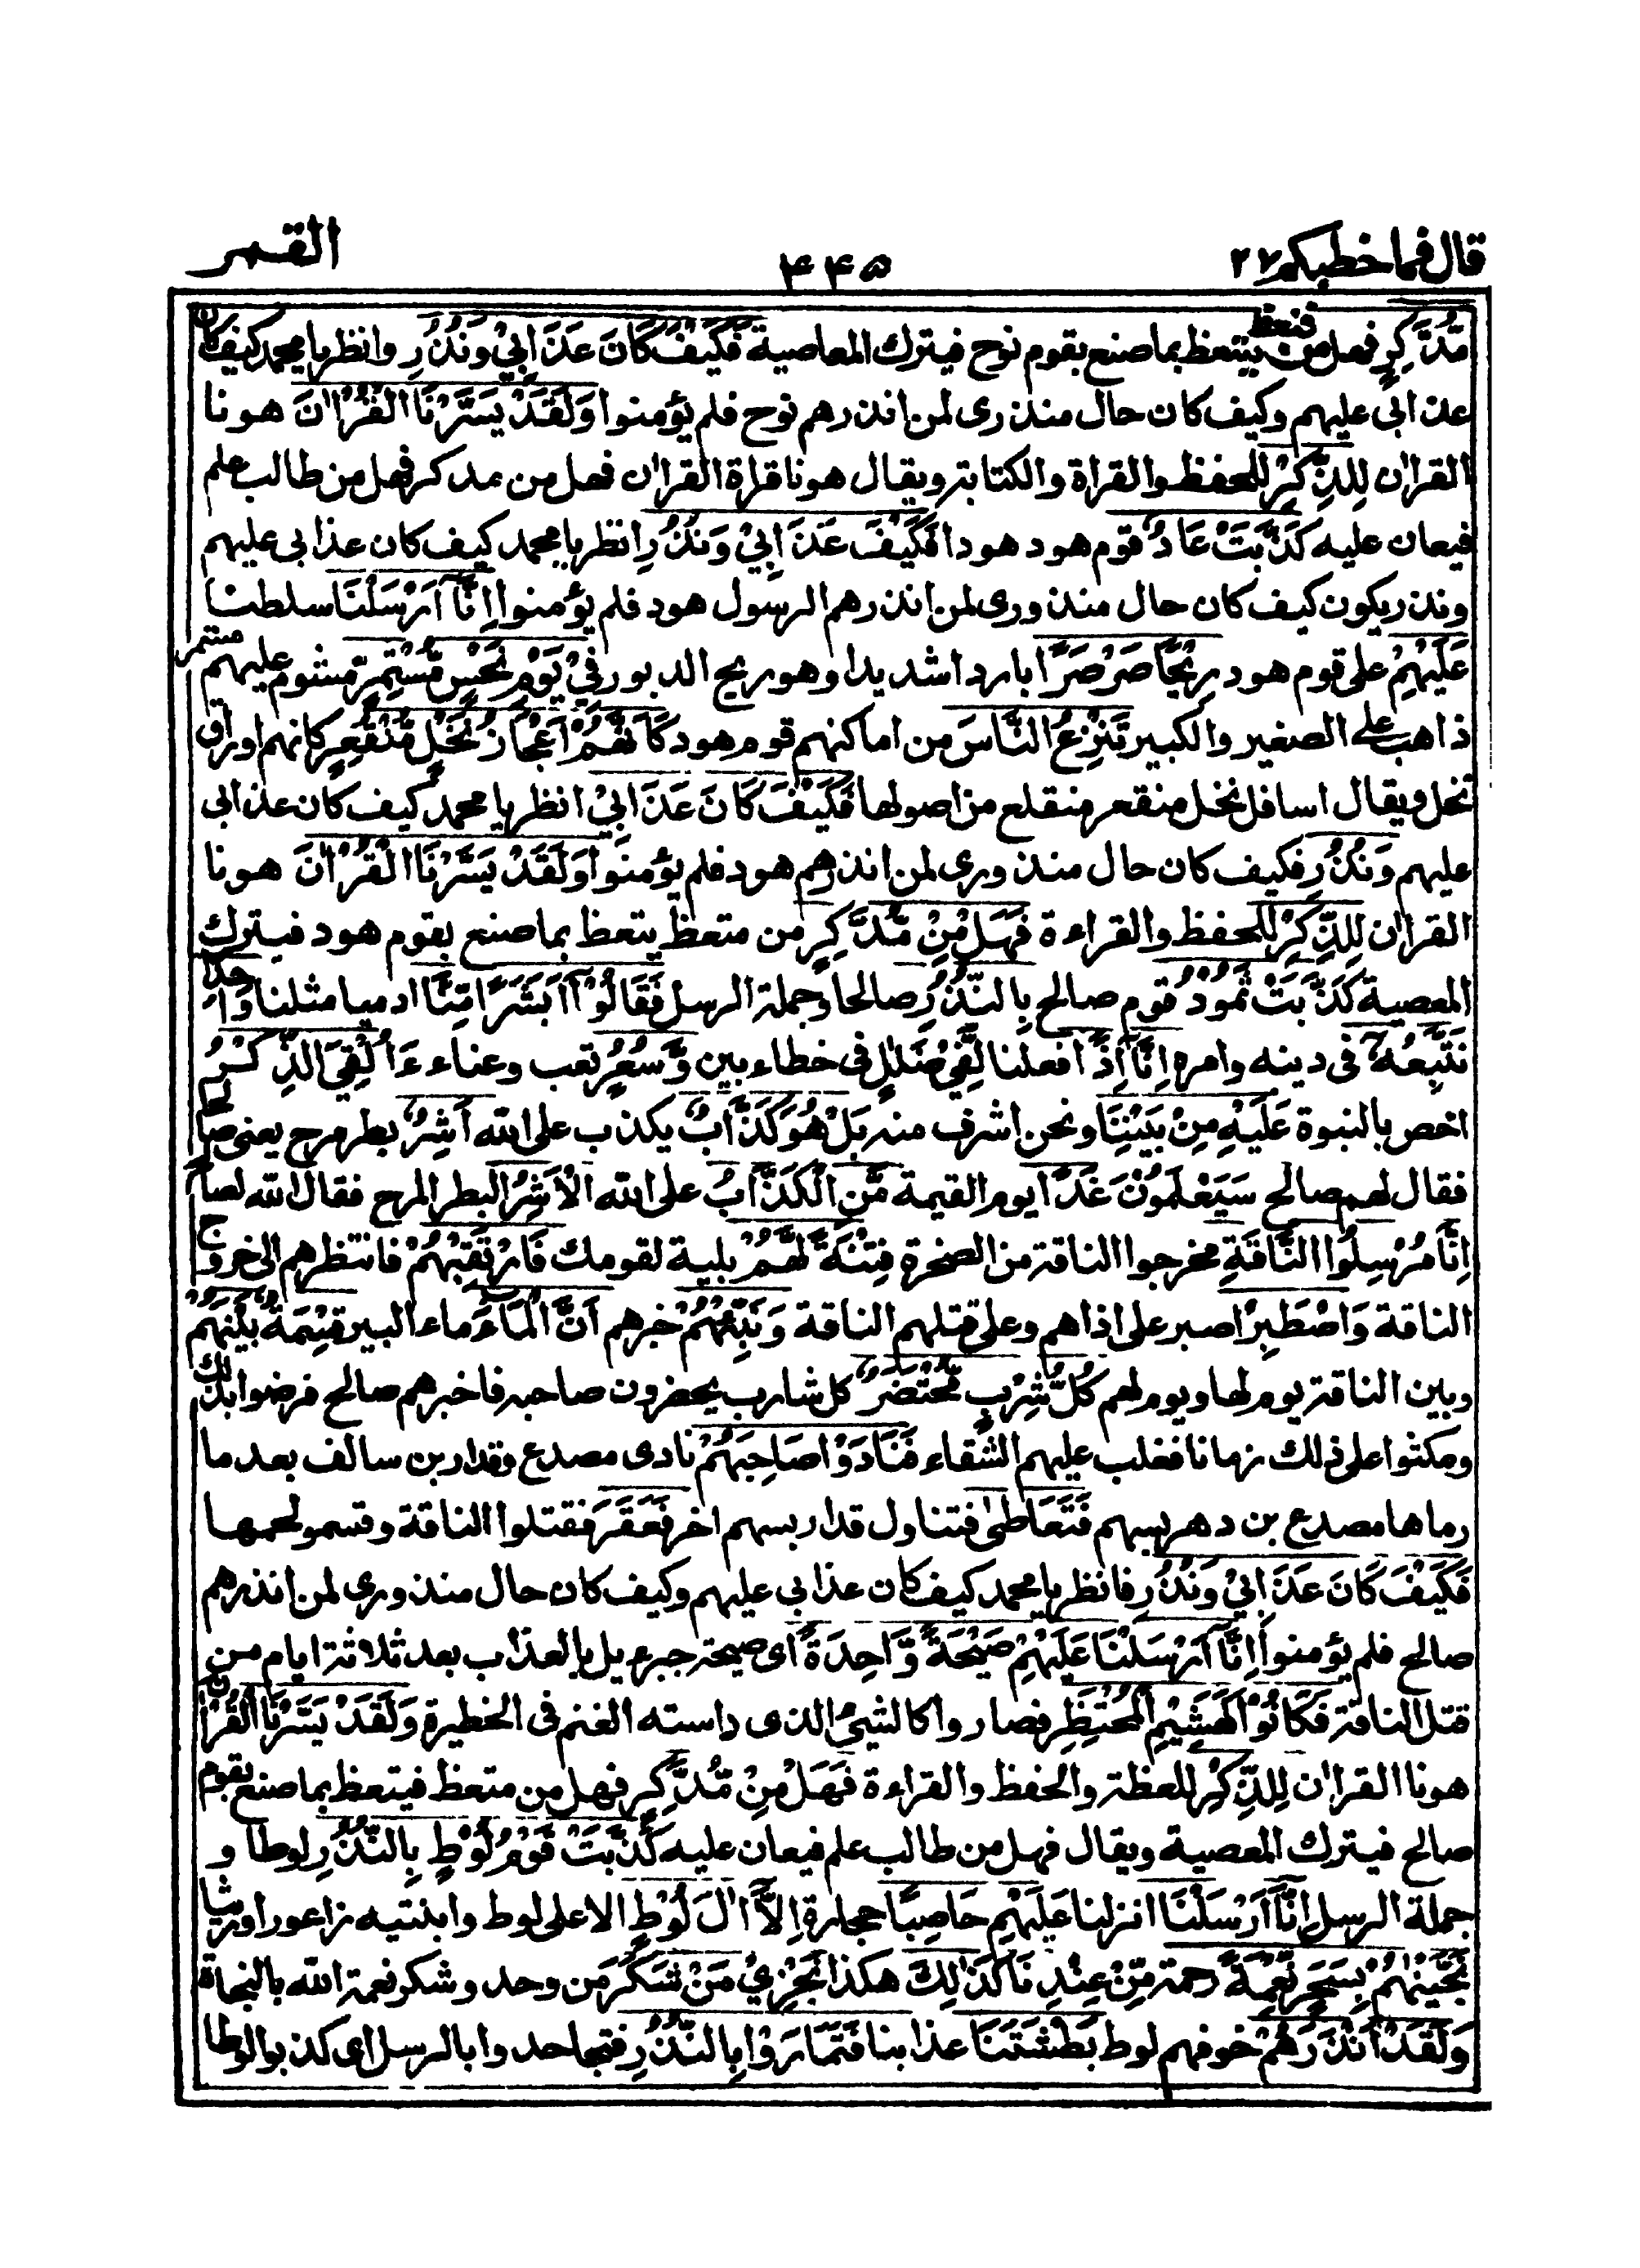 قال فما خطبكم ٢٧
٤٤٥
القمر
مُّدَّكِرٍ فهل من يتعظ فيتعظ بما صنع بقوم نوح فيترك المعاصية فَكَيْفَ كَانَ عَذَابِيْ وَنُذُرِ وانظر يا محمد كيف كان
عذابى عليهم وكيف كان حال منذرى لمن انذرهم نوح فلم يؤمنوا وَلَقَدْ يَسَّرْنَا الْقُرْاٰنَ هونا
القراٰن لِلذِّكْرِ للحفظ والقراة والكتابة ويقال هونا قراة القراٰن فهل من مدكر فهل من طالب علم
فيعان عليه كَذَّبَتْ عَادٌ قوم هود هودا فَكَيْفَ عَذَابِيْ وَنُذُرِ انظر يا محمد كيف كان عذابى عليهم
ونذر يكون كيف كان حال منذورى لمن انذرهم الرسول هود فلم يؤمنوا اِنَّآ اَرْسَلْنَا سلطنا
عَلَيْهِمْ على قوم هود رِيْحًا صَرْصَرًا باردا شديدا وهو ريح الدبور فِيْ يَوْمِ نَحْسٍ مُّسْتَمِرٍّ مشوم عليهم مستمر
ذاهب على الصغير والكبير تَنْزِعُ النَّاسَ من اماكنهم قوم هود كَاَنَّهُمْ اَعْجَازُ نَخْلٍ مُّنْقَعِرٍ كانهم اوراق
نخل ويقال اسافل نخل منقعر منقلع من اصولها فَكَيْفَ كَانَ عَذَابِيْ انظر يا محمد كيف كان عذابى
عليهم وَنُذُرِ فكيف كان حال منذورى لمن انذرهم هود فلم يؤمنوا وَلَقَدْ يَسَّرْنَا الْقُرْاٰنَ هونا
القراٰن لِلذِّكْرِ للحفظ والقراءة فَهَلْ مِنْ مُّدَّكِرٍ من متعظ يتعظ بما صنع بقوم هود فيترك
المعصية كَذَّبَتْ ثَمُوْدُ قوم صالح بِالنُّذُرِ صالحا وجملة الرسل فَقَالُوْآ اَبَشَرًا مِّنَّا ادميا مثلنا وَاحِدًا
نَتَّبِعُهٗٓ فى دينه وامره اِنَّآ اِذًا فعلنا لَّفِيْ ضَلٰلٍ فى خطاء بين وَّسُعُرٍ تعب وعناء ءَاُلْقِيَ الذِّكْرُ
اخص بالنبوة عَلَيْهِ مِنْ بَيْنِنَا ونحن اشرف منه بَلْ هُوَ كَذَّابٌ يكذب على الله اَشِرٌ بطر مرح يعنى صالحا
فقال لهم صالح سَيَعْلَمُوْنَ غَدًا يوم القيمة مَّنِ الْكَذَّابُ على الله الْاَشِرُ البطر المرح فقال الله لصالح
اِنَّا مُرْسِلُوا النَّاقَةِ مخرجوا الناقة من الصخرة فِتْنَةً لَّهُمْ بلية لقومك فَارْتَقِبْهُمْ فانتظرهم الى خروج
الناقة وَاصْطَبِرْ اصبر على اذاهم وعلى قتلهم الناقة وَنَبِّئْهُمْ خبرهم اَنَّ الْمَآءَ ماء البير قِسْمَةٌۢ بَيْنَهُمْ
وبين الناقة يوم لها ويوم لهم كُلُّ شِرْبٍ مُّحْتَضَرٌ كل شارب يحضرون صاحبه فاخبرهم صالح فرضوا بذلك
ومكثوا على ذلك زمانا فغلب عليهم الشقاء فَنَادَوْا صَاحِبَهُمْ نادى مصدع وقدار بن سالف بعد ما
رماها مصدع بن دهر بسهم فَتَعَاطٰى فتناول قدار بسهم اخر فَعَقَرَ فقتلوا الناقة وقسمو لحمها
فَكَيْفَ كَانَ عَذَابِيْ وَنُذُرِ فانظر يا محمد كيف كان عذابى عليهم وكيف كان حال منذورى لمن انذرهم
صالح فلم يؤمنوا اِنَّآ اَرْسَلْنَا عَلَيْهِمْ صَيْحَةً وَّاحِدَةً اى صيحة جبرءيل بالعذاب بعد ثلاثة ايام من
قتل الناقة فَكَانُوْا كَهَشِيْمِ الْمُحْتَظِرِ فصاروا كالشيئ الذى داسته الغنم فى الحظيرة وَلَقَدْ يَسَّرْنَا الْقُرْاٰنَ
هونا القراٰن لِلذِّكْرِ للعظة والحفظ والقراءة فَهَلْ مِنْ مُّدَّكِرٍ فهل من متعظ فيتعظ بما صنع بقوم
صالح فيترك المعصية ويقال فهل من طالب علم فيعان عليه كَذَّبَتْ قَوْمُ لُوْطٍۢ بِالنُّذُرِ لوطا و
جملة الرسل اِنَّآ اَرْسَلْنَا انزلنا عَلَيْهِمْ حَاصِبًا حجارة اِلَّآ اٰلَ لُوْطٍ الا على لوط وابنتيه زاعورا وريثا
نَجَّيْنٰهُمْ بِسَحَرٍ نِّعْمَةً رحمة مِّنْ عِنْدِنَا كَذٰلِكَ هكذا نَجْزِيْ مَنْ شَكَرَ من وحد وشكر نعمة الله بالنجاة
وَلَقَدْ اَنْذَرَهُمْ خوفهم لوط بَطْشَتَنَا عذابنا فَتَمَارَوْا بِالنُّذُرِ فتجاحدوا بالرسل اى كذبوا لوطا